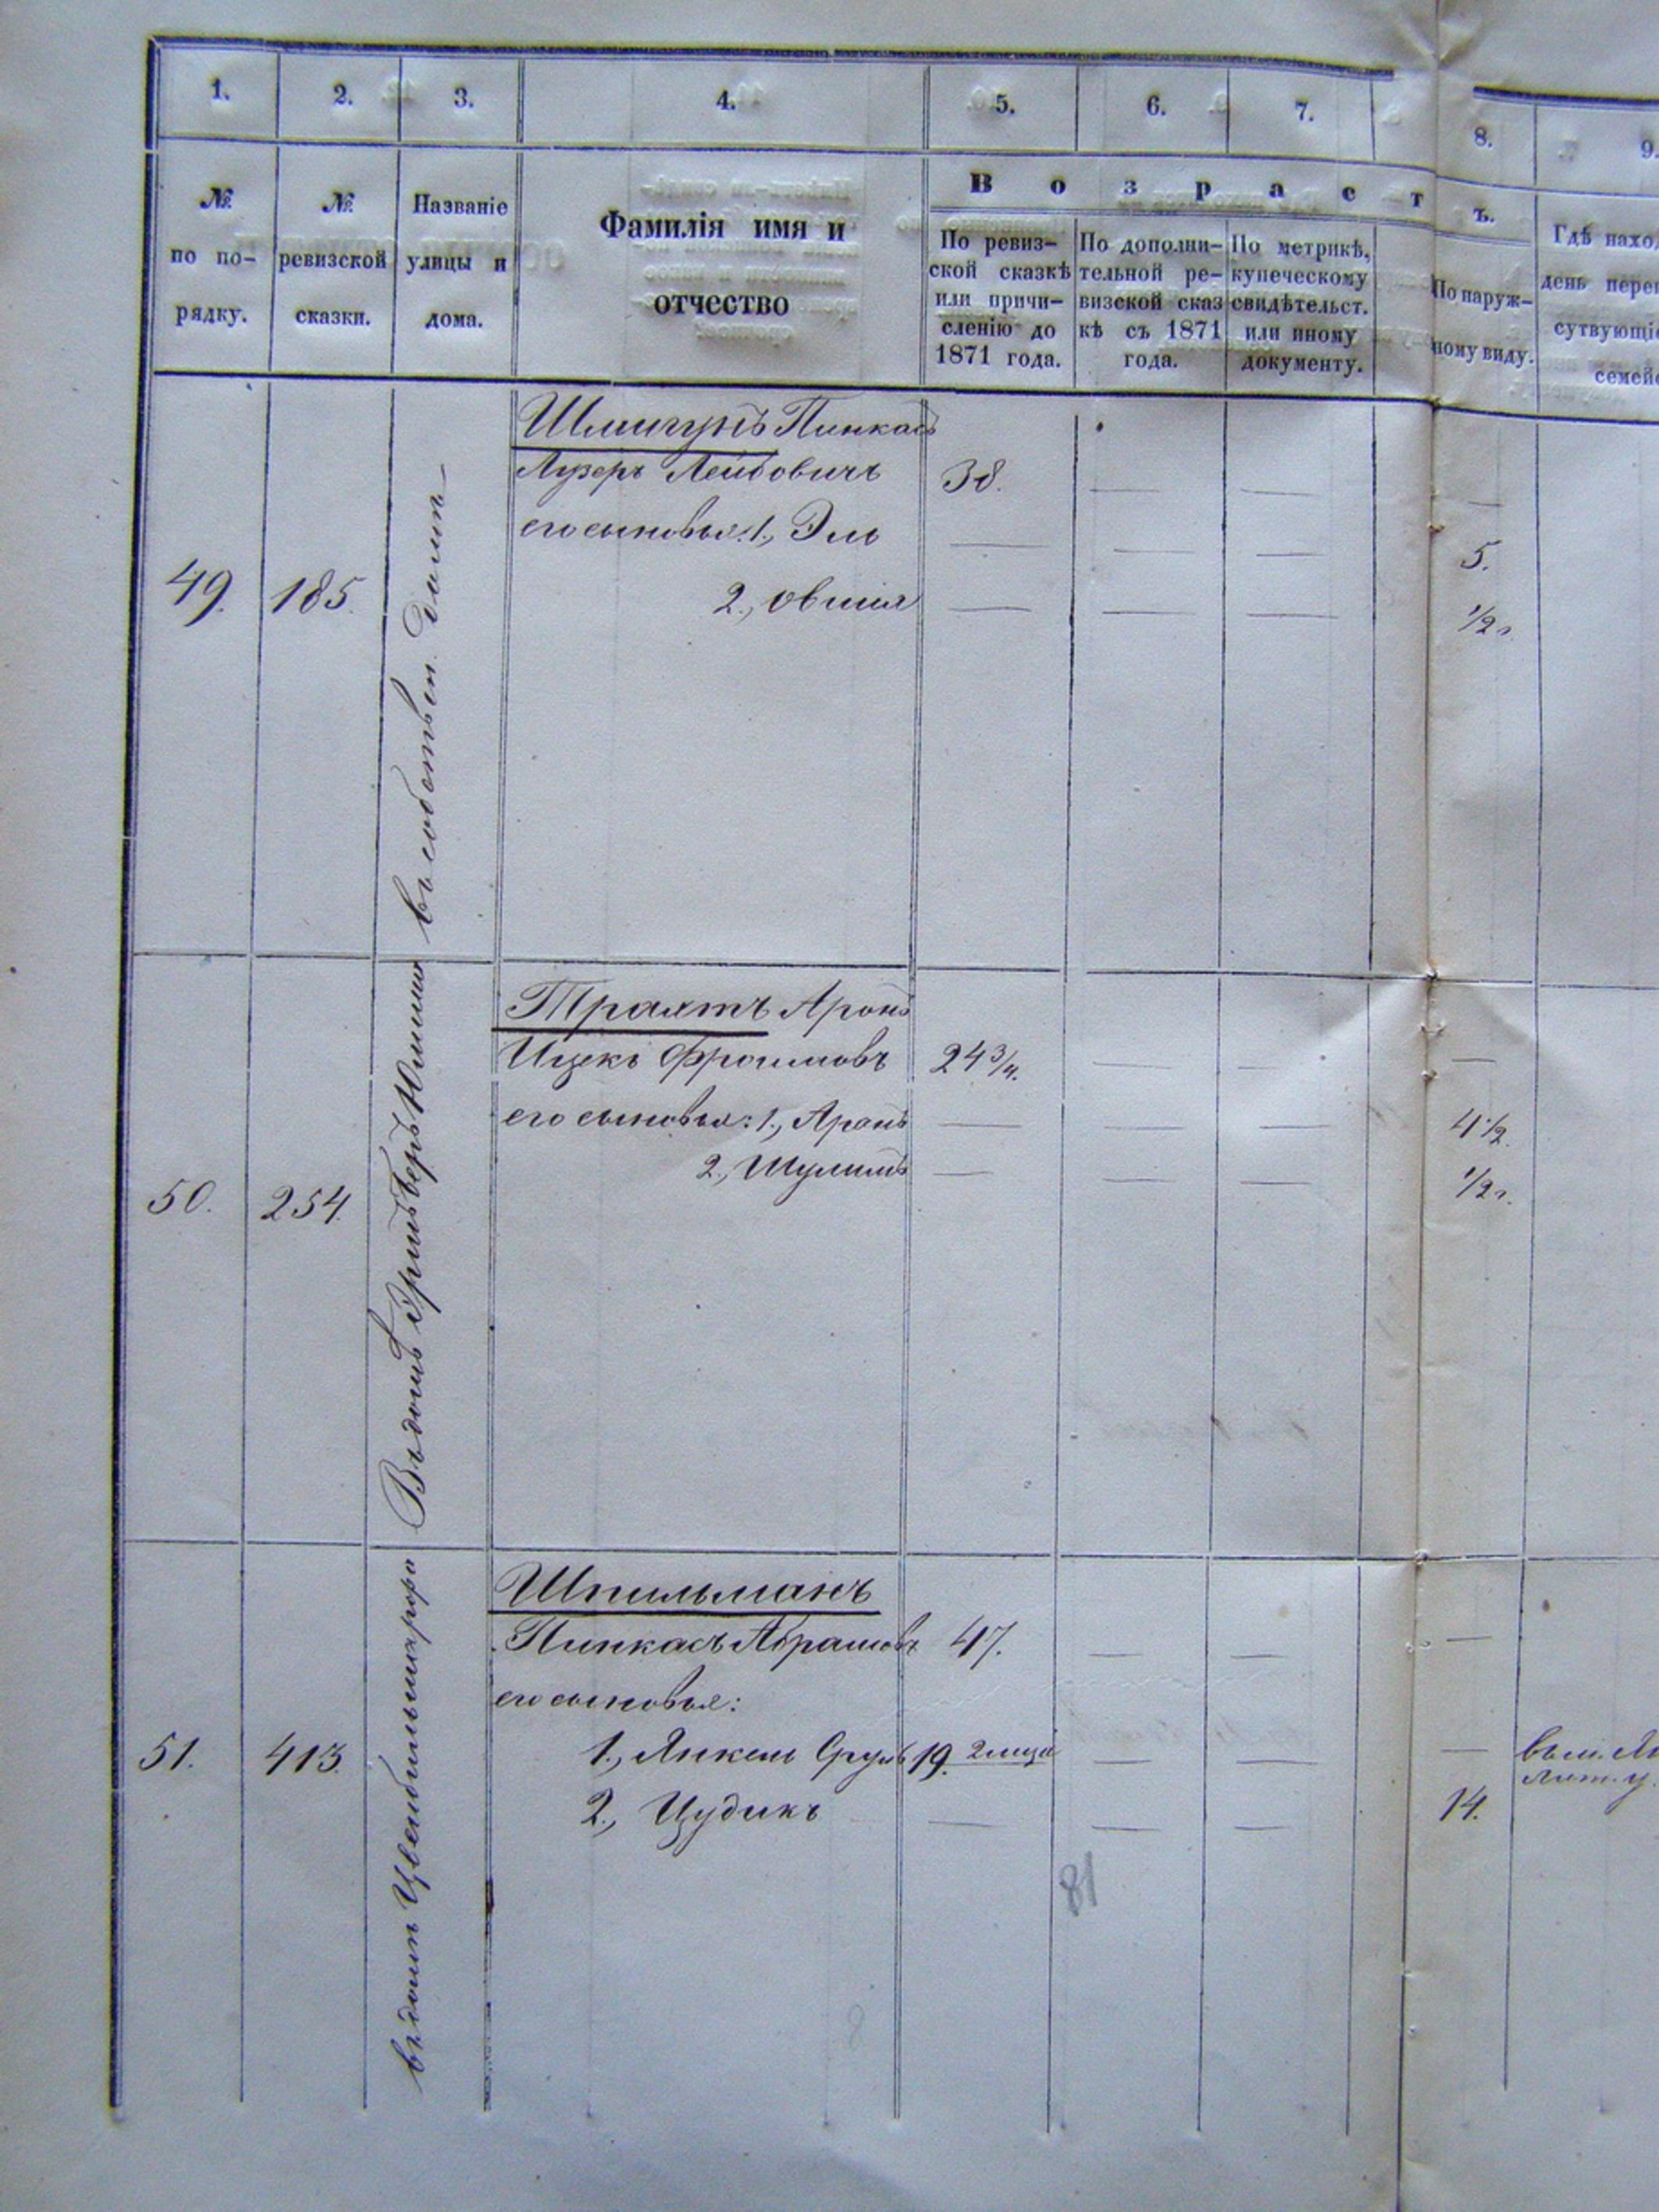 1. 2. 3. 4. 5. 6. 7. 8. 9.
№ по по-рядку.
№ ревизской сказки.
Названіе улицы и дома.
Фамилія имя и
отчество
Возрастъ.
По ревиз-
ской сказкѣ
или причи-
сленію до
1871 года.
По дополни-
тельной ре-
визской сказ
кѣ съ 1871
года.
По метрикѣ,
купеческому
свидѣтельст.
или иному
документу.
По наруж-
ному виду.
Гдѣ наход
день
сутвующі
семей
49. 185.
въ собствен. домѣ
Шмигунъ Пинкасъ
Лузеръ Лейбовичъ 38. — — —
его сыновья: 1., Эль — — — 5.
2., Овшія — — — 1/2 г.
50. 254.
Въ домѣ
Траятъ Аронъ
Ицекъ Фроимовъ 24 3/4. — — —
его сыновья: 1., Аронъ — — — 4 1/2.
2., Шулимъ — — — 1/2 г.
51. 413.
въ домѣ
Шпильманъ
Пинкасъ Абрамовъ 47. — — —
его сыновья:
1., Янкель Сруль 19. — — —
2., Цудикъ — — — 14.
81